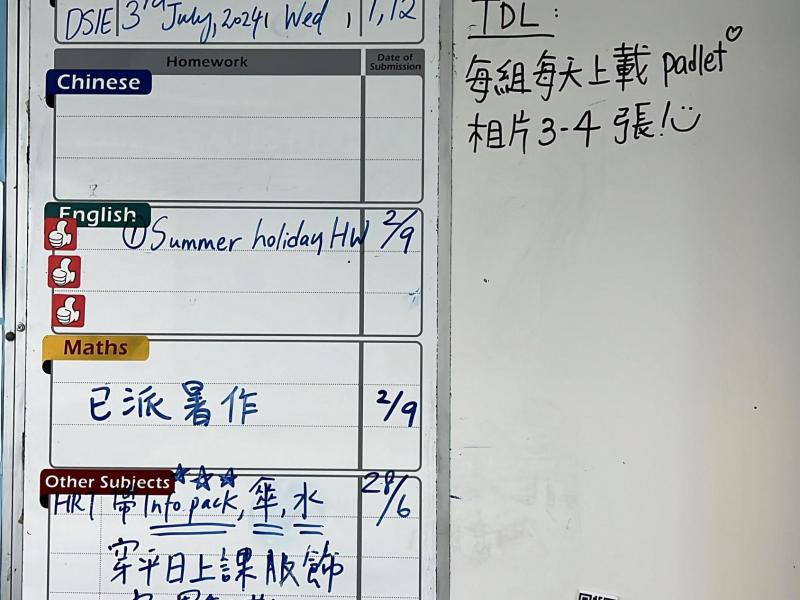 DSIE 3rd July, 2024, Wed, 1,12
Homework Date of Submission
Chinese
English
① Summer holiday HW 2/9
Maths
已派暑作 2/9
Other Subjects
HRT 帶 Info pack, 傘, 水 28/6
穿平日上課服飾
TDL:
每組每天上載 padlet
相片 3-4 張!